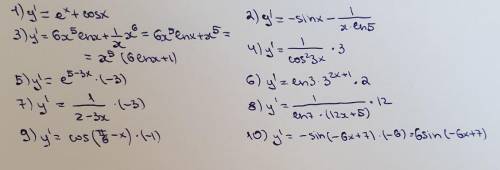 1) y' = eˣ + cosx
2) y' = -sinx - 1/(x ln5)
3) y' = 6x⁵ lnx + 1/x x⁶ = 6x⁵ lnx + x⁵ =
= x⁵ (6lnx+1)
4) y' = 1/(cos²3x) · 3
5) y' = e⁵⁻³ˣ · (-3)
6) y' = ln3 · 3²ˣ⁺¹ · 2
7) y' = 1/(2-3x) · (-3)
8) y' = 1/(ln7 · (12x+5)) · 12
9) y' = cos(π/6 - x) · (-1)
10) y' = -sin(-6x+7) · (-6) = 6sin(-6x+7)